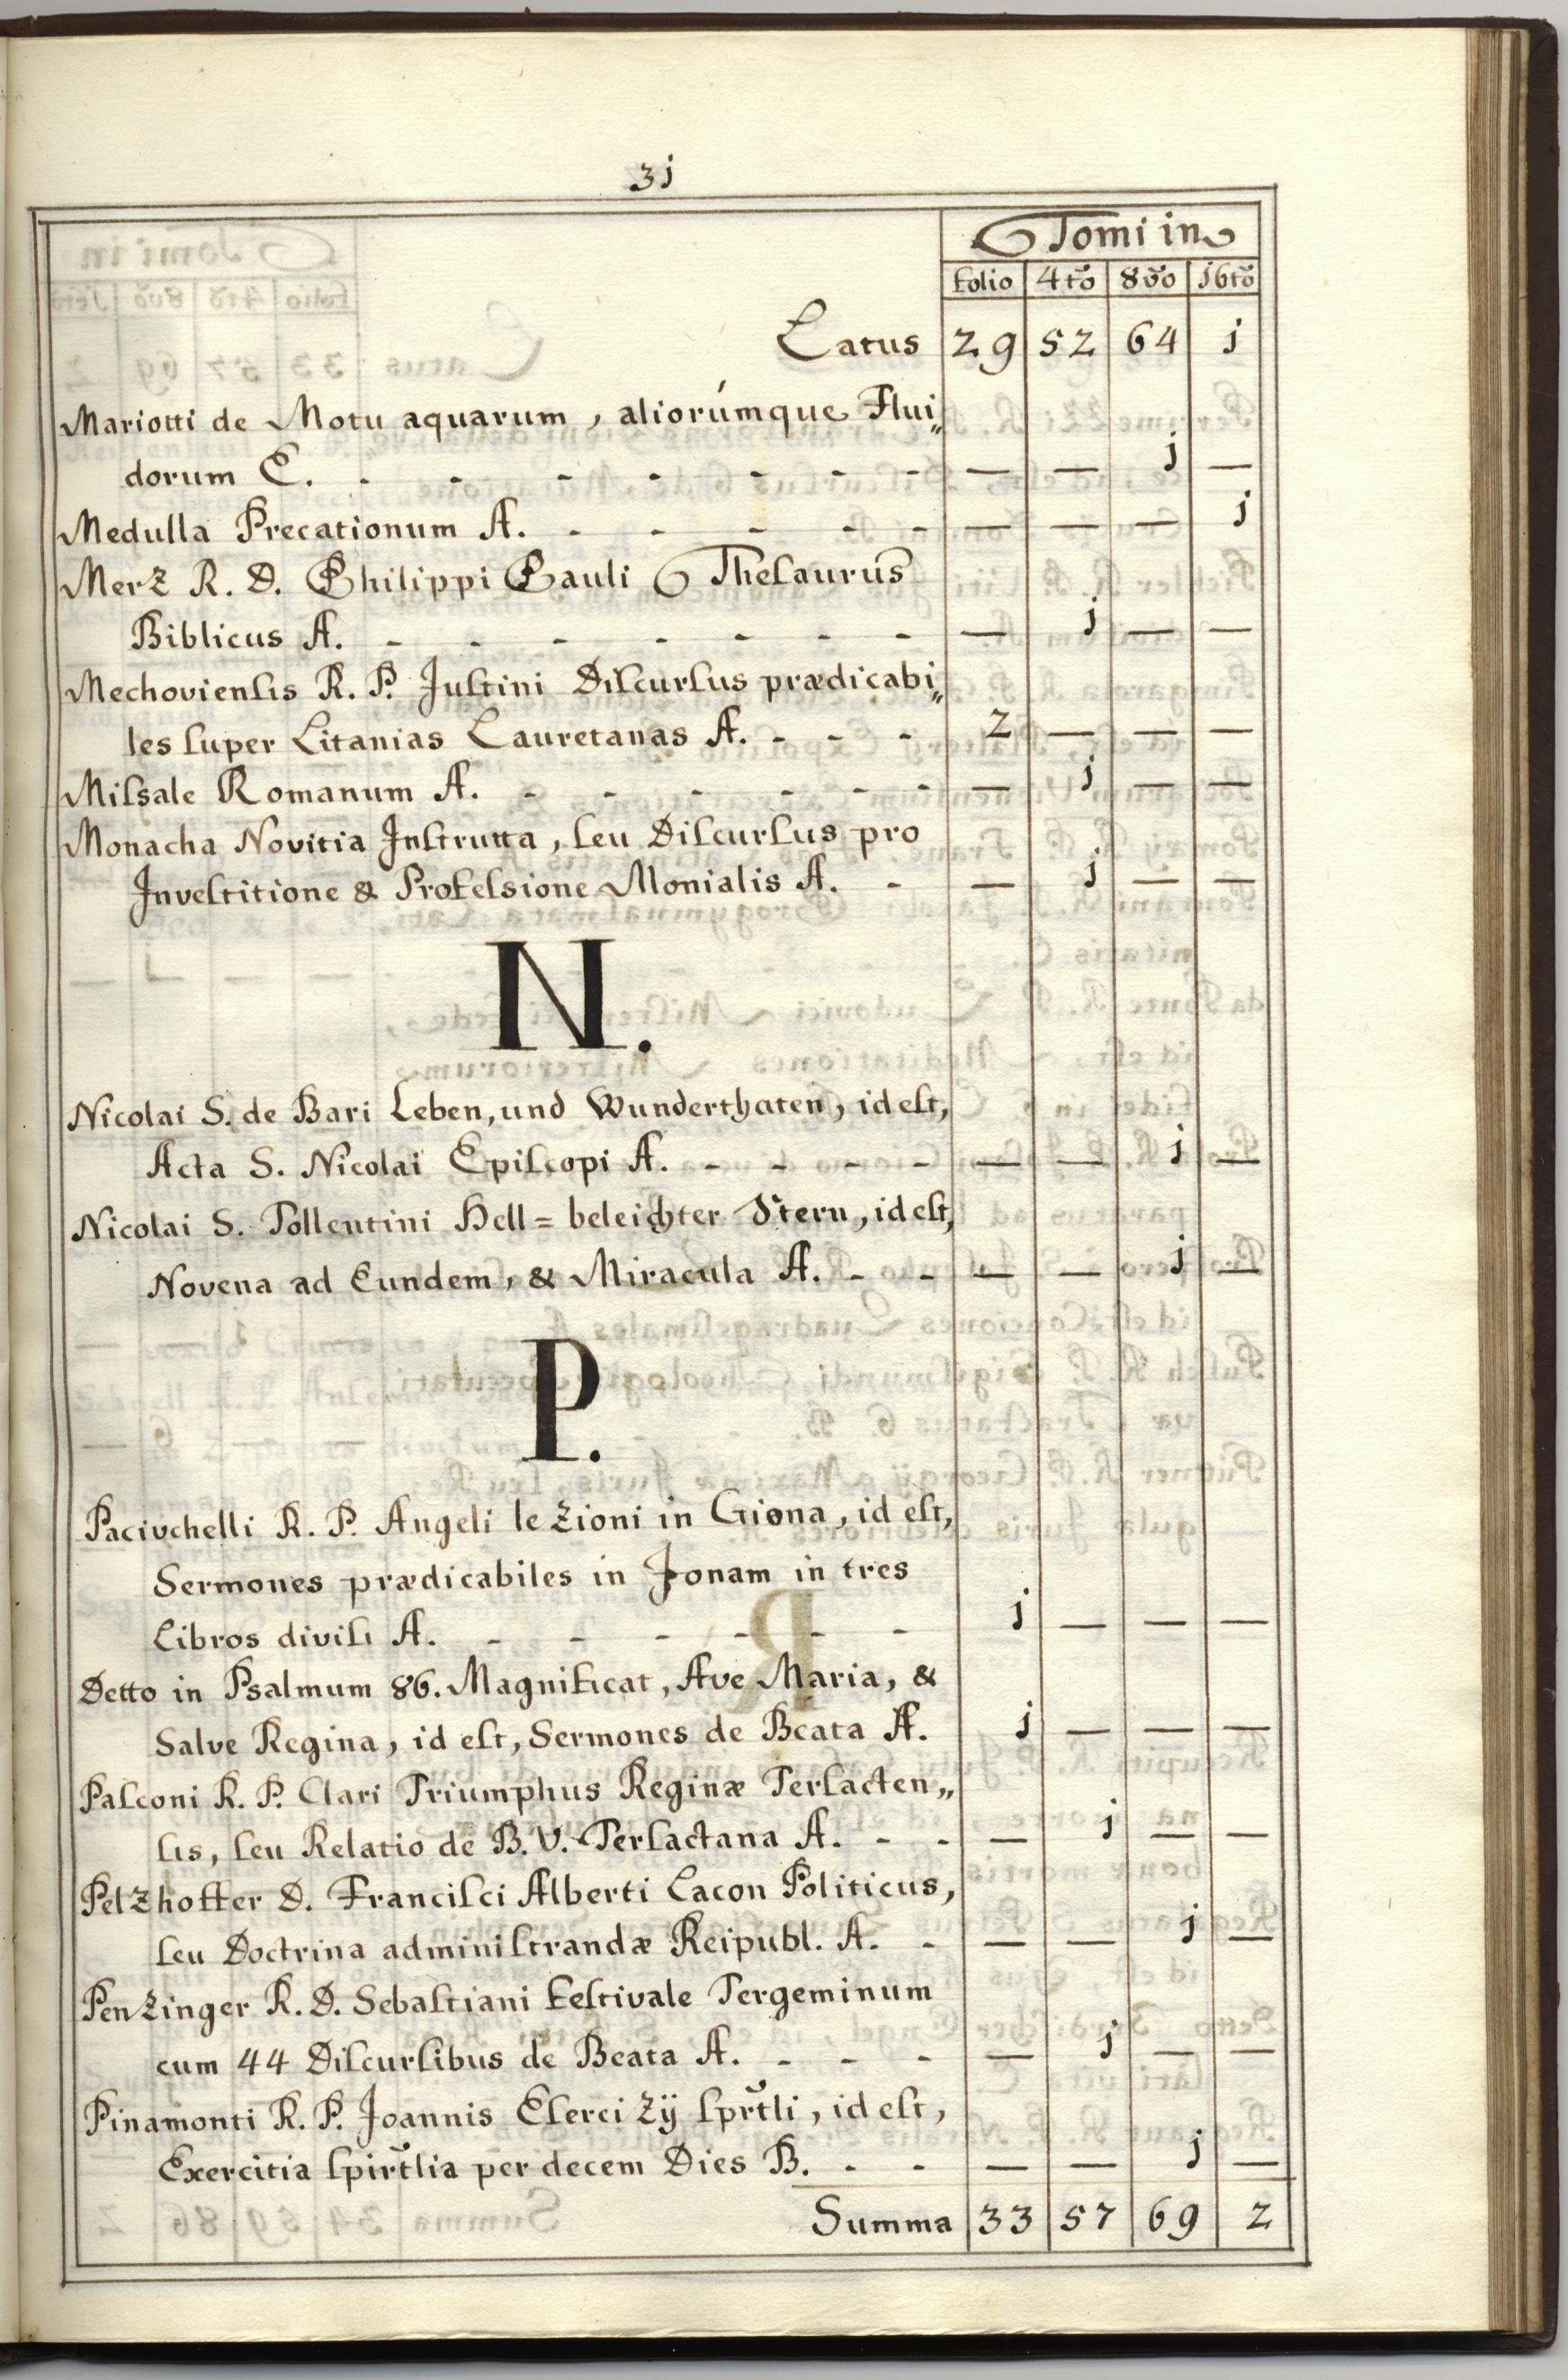 3j
Tomi in
Folio 4to 8vo j6to
Latus 29 52 64 j
Mariotti de Motu aquarum, aliorúmque Flui„
dorum C. - - - - - - - — — j —
Medulla Precationum A. - - - - - — — — j
Merz R. D. Philippi Pauli Thesaurus
Biblicus A. - - - - - - - — j — —
Mechoviensis R. P. Justini Discursus prædicabi„
les super Litanias Lauretanas A. - - - 2 — — —
Missale Romanum A. - - - - - - — j — —
Monacha Novitia Instrutta, seu Discursus pro
Investitione & Professione Monialis A. - — j — —
N.
Nicolai S. de Bari Leben, und Wunderthaten, id est,
Acta S. Nicolai Episcopi A. - - - - — — j —
Nicolai S. Tollentini Hell=beleichter Stern, id est,
Novena ad Eundem, & Miracula A. - - — — j —
P.
Paciuchelli R. P. Angeli lezioni in Giona, id est,
Sermones prædicabiles in Jonam in tres
Libros divisi A. - - - - - - j — — —
Detto in Psalmum 86. Magnificat, Ave Maria, &
Salve Regina, id est, Sermones de Beata A. j — — —
Palconi R. P. Clari Triumphus Reginæ Tersacten„
sis, seu Relatio de B. V. Tersactana A. - - — j — —
Pelzhoffer D. Francisci Alberti Lacon Politicus,
seu Doctrina administrandæ Reipubl. A. - — — j —
Penzinger R. D. Sebastiani Festivale Tergeminum
cum 44 Discursibus de Beata A. - - - — j — —
Pinamonti R. P. Joannis Esercizÿ sprtli, id est,
Exercitia spirtlia per decem Dies B. - - — — j —
Summa 33 57 69 2